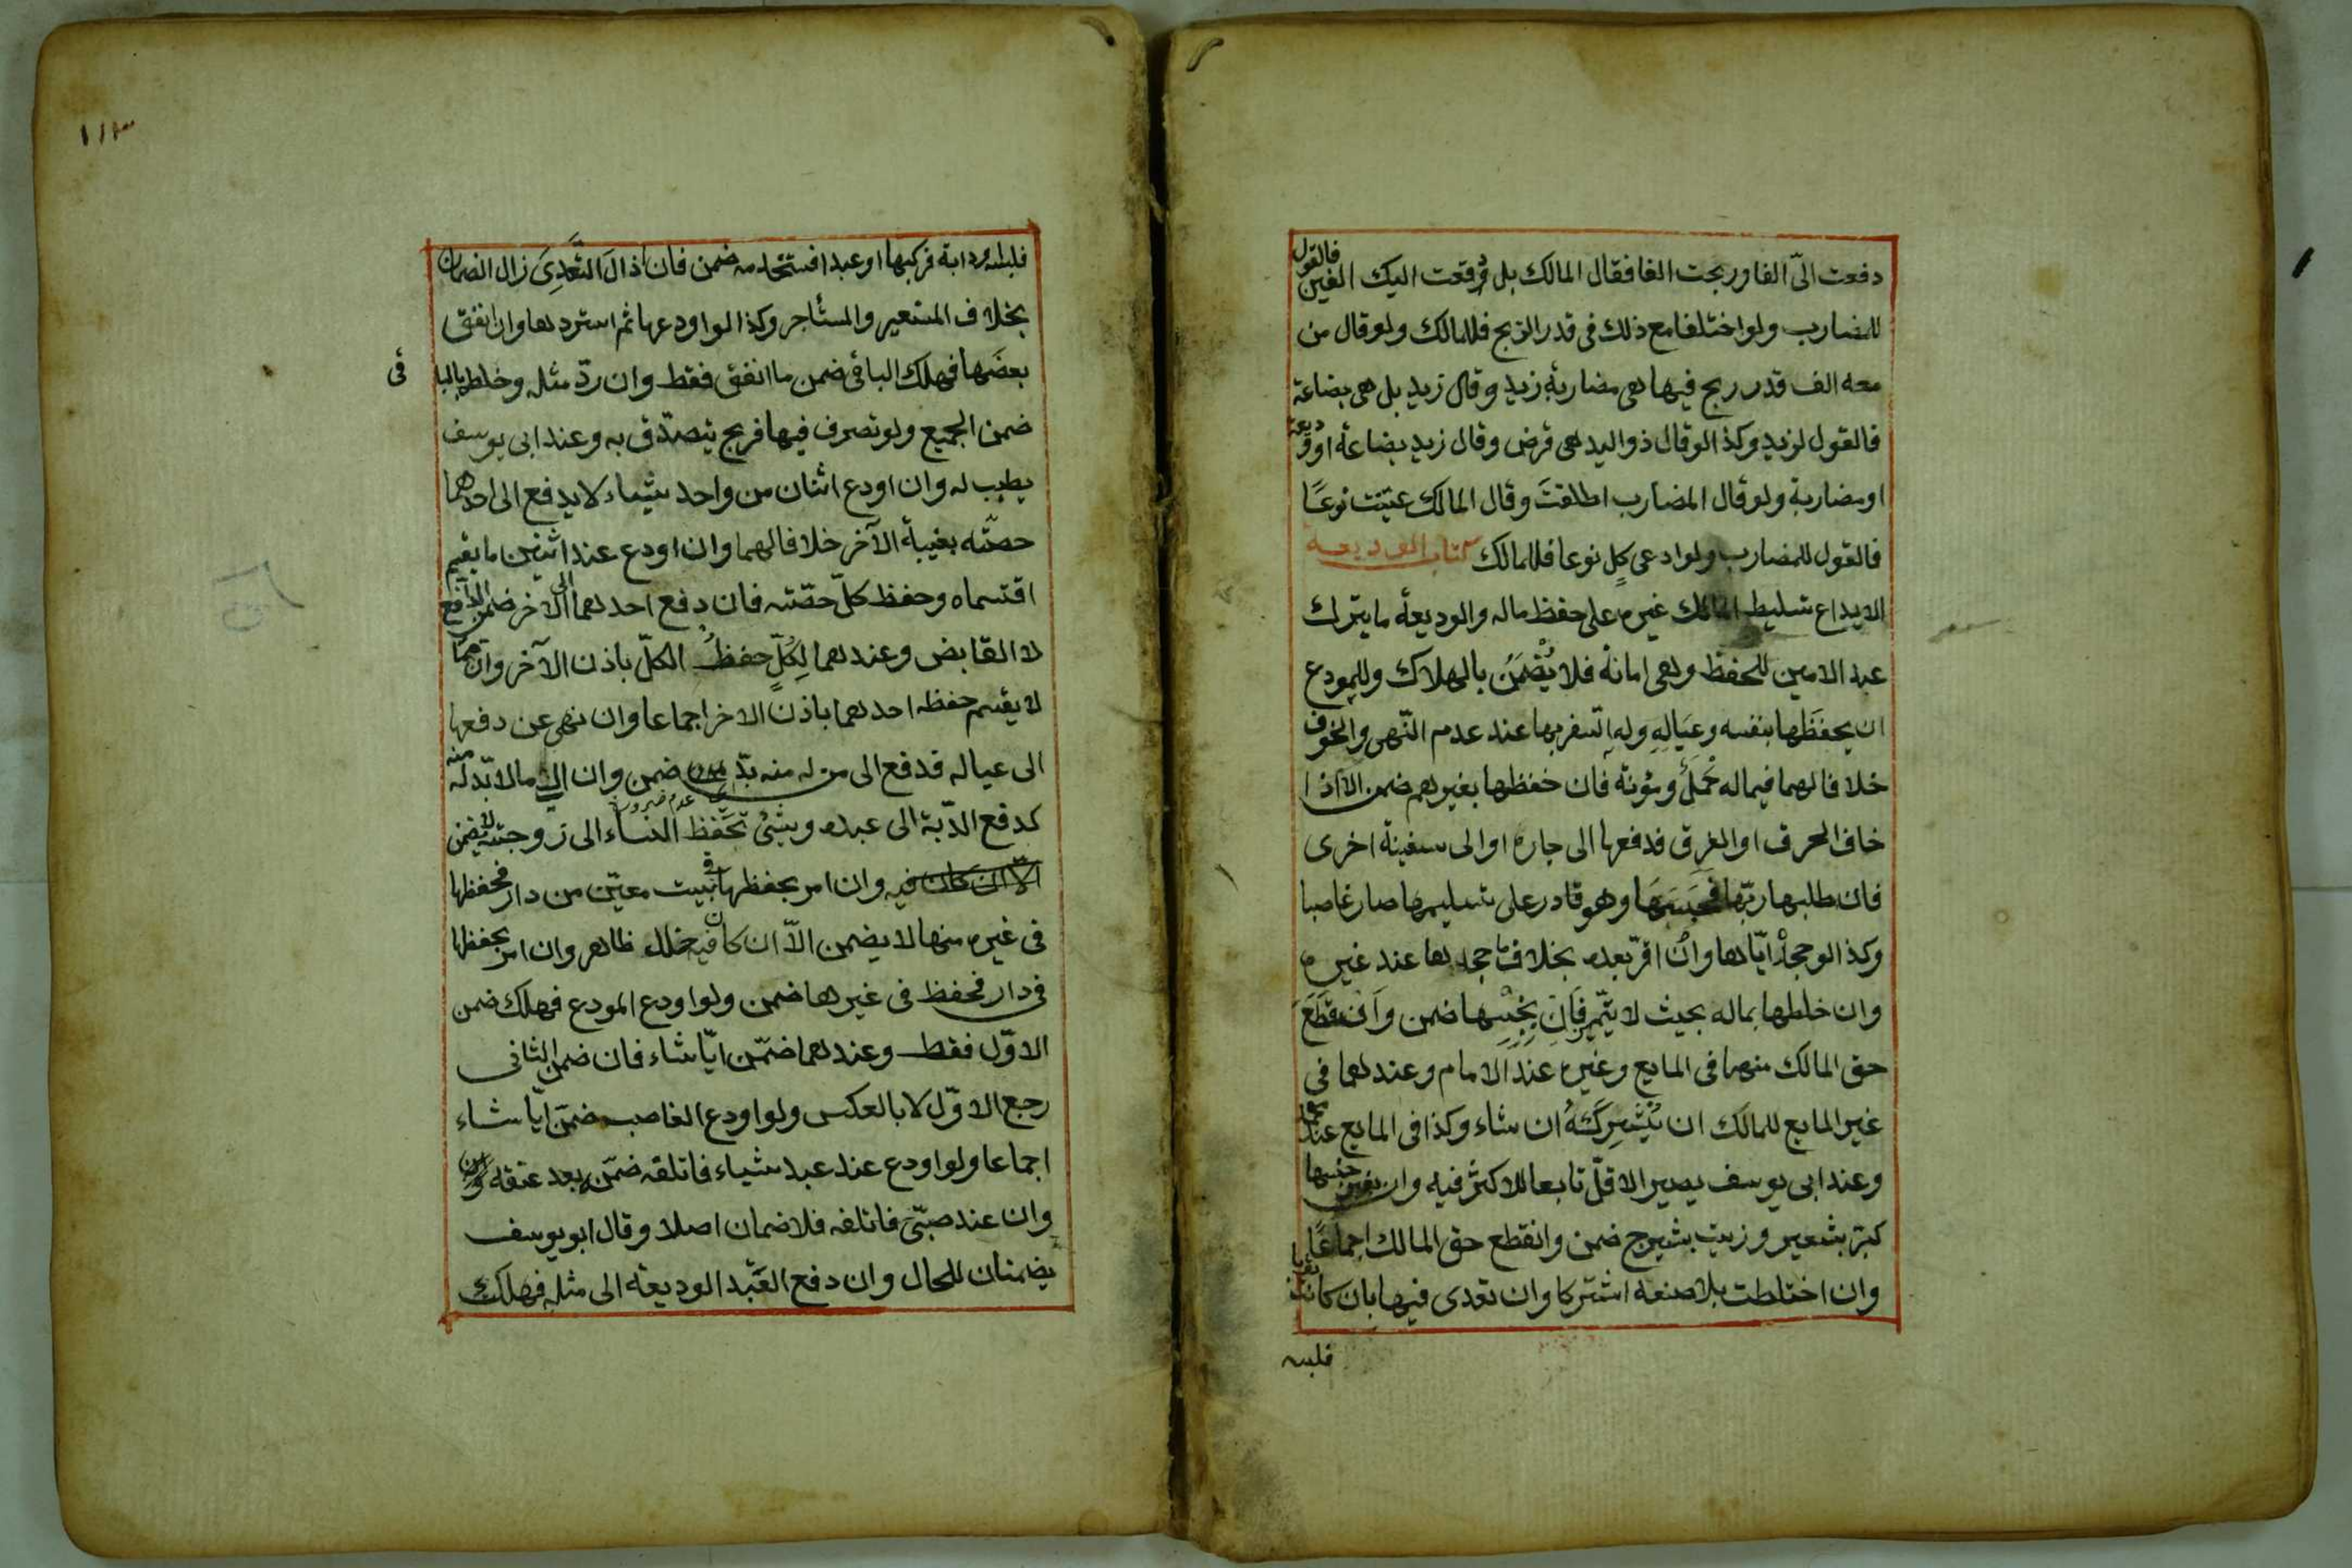 دفعت اليّ الفا وربحت الفا فقال المالك بل دفعت اليك الفين فالقول
للمضارب ولو اختلفا مع ذلك فى قدر الربح فللمالك ولو قال من
معه الف قدر ربح فيها هى مضاربة زيد وقال زيد بل هى بضاعة
فالقول لزيد وكذا لو قال ذو اليد هى قرض وقال زيد بضاعة او وديعة
او مضاربة ولو قال المضارب اطلقتَ وقال المالك عيّنت نوعًا
فالقول للمضارب ولو ادعى كل نوعا فللمالك كتاب الوديعة
الايداع تسليط المالك غيره على حفظ ماله والوديعة ما يترك
عند الامين للحفظ وهى امانة فلا يُضْمَن بالهلاك وللمودع
ان يحفظَها بنفسه وعيَالِهِ وله السّفر بها عند عدم النّهى والخوف
خلافا لهما فيما له حَمل ومؤنة فان حفظها بغيرهم ضمن الا اذا
خاف الحرق او الغرق فدفعها الى جاره او الى سفينة اخرى
فان طلبها ربّها فحبسَهَا وهو قادر على تسليمها صار غاصبا
وكذا لو جحدْ ايّاها وان اقرّ بعده بخلاف ما جحدها عند غيره
وان خلطها بماله بحيث لا يتميّز فان بجِنْسِها ضمن وانقطَعَ
حق المالك منها فى المايع وغيره عند الامام وعندهما فى
غير المايع للمالك ان يُشرِكَهُ ان شاء وكذا فى المايع عند محمد
وعند ابى يوسف يصير الاقلّ تابعا للاكثر فيه وان بغير جنسها
كبرّ بشعير وزيت بشيرج ضمن وانقطع حق المالك اجماعًا
وان اختلطت بلا صنعه اشتركا وان تعدى فيها بان كانت ثوبا
فلبسه
١١٣
فلبسه ودابة فركبها او عبدا فستخدمه ضمن فان اذالَ التَّعَدِىَ زال الضمان
بخلاف المستعير والمستأجر وكذا لو اودعها ثم استردها وان انفق
بعضَها فهلك الباقى ضمن ما انفق فقط وان ردّ مثله وخلطه بالبا
فى
ضمن الجميع ولو تصرف فيها فربح يتصدّق به وعند ابى يوسف
يطيب له وان اودع اثنان من واحد شيئاء لا يدفع الى احدهما
حصّته بغيبة الآخر خلافا لهما وان اودع عند اثنين ما يقسم
اقتسماه وحفظ كلّ حصّته فان دفع احدهما الى الاخر ضمن الدافع
لا القابض وعندهما لِكُلٍّ حفظُ الكلّ باذن الآخر وان مما
لا يقسم حفظه احدهما باذن الاخر اجماعا وان نهى عن دفعها
الى عياله فدفع الى من له منه بدّ ضمن وان الى ما لا بدّ له منه
عدم ضرورت
كدفع الدّبة الى عبده وبشئ تحفظ النساء الى زوجته لا يضمن
الّا ان كان فيه وان امر بحفظها فى بيت معيّن من دار فحفظها
فى غيره منها لا يضمن الّا ان كان فيه خلل ظاهر وان امر بحفظها
فى دار فحفظ فى غيرها ضمن ولو اودع المودع فهلك ضمن
الاوّل فقط وعندهما ضمّن ايّا شاء فان ضمن الثانى
رجع الاوّل لا بالعكس ولو اودع الغاصب ضمّن ايّا شاء
اجماعا ولو اودع عند عبد شيئاء فاتلفه ضمّنه بعد عتقه
وان عند صبّىٍ فاتلفه فلا ضمان اصلا وقال ابو يوسف
يضمنان للحال وان دفع العَبْد الوديعة الى مثله فهلكت